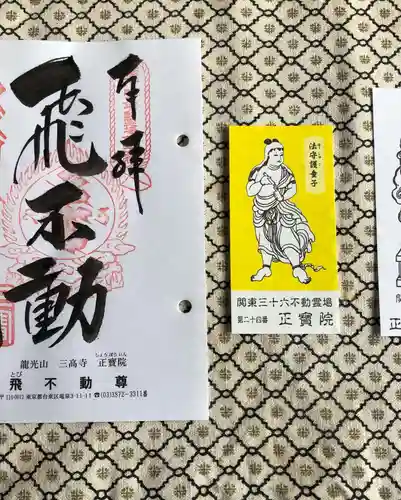 奉拝
飛不動
龍光山 三高寺 正寶院
しょうぼういん
飛不動尊
とび
〒110-0012 東京都台東区竜泉3-11-11 ☎(03)3872-3311番
法守護童子
関東三十六不動霊場
第二十四番 正寶院